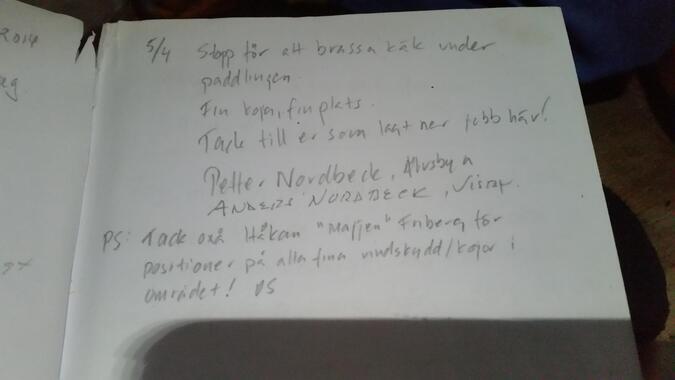 2014
5/4 Stopp för att brassa käk under
paddlingen.
Fin koja, fin plats.
Tack till er som lagt ner jobb här!
Petter Nordbeck, Älvsbyn
ANDERS NORDBECK, Visby.
PS: Tack oxå Håkan "Masjen" Friberg för
positioner på alla fina vindskydd/kojor i
området! DS